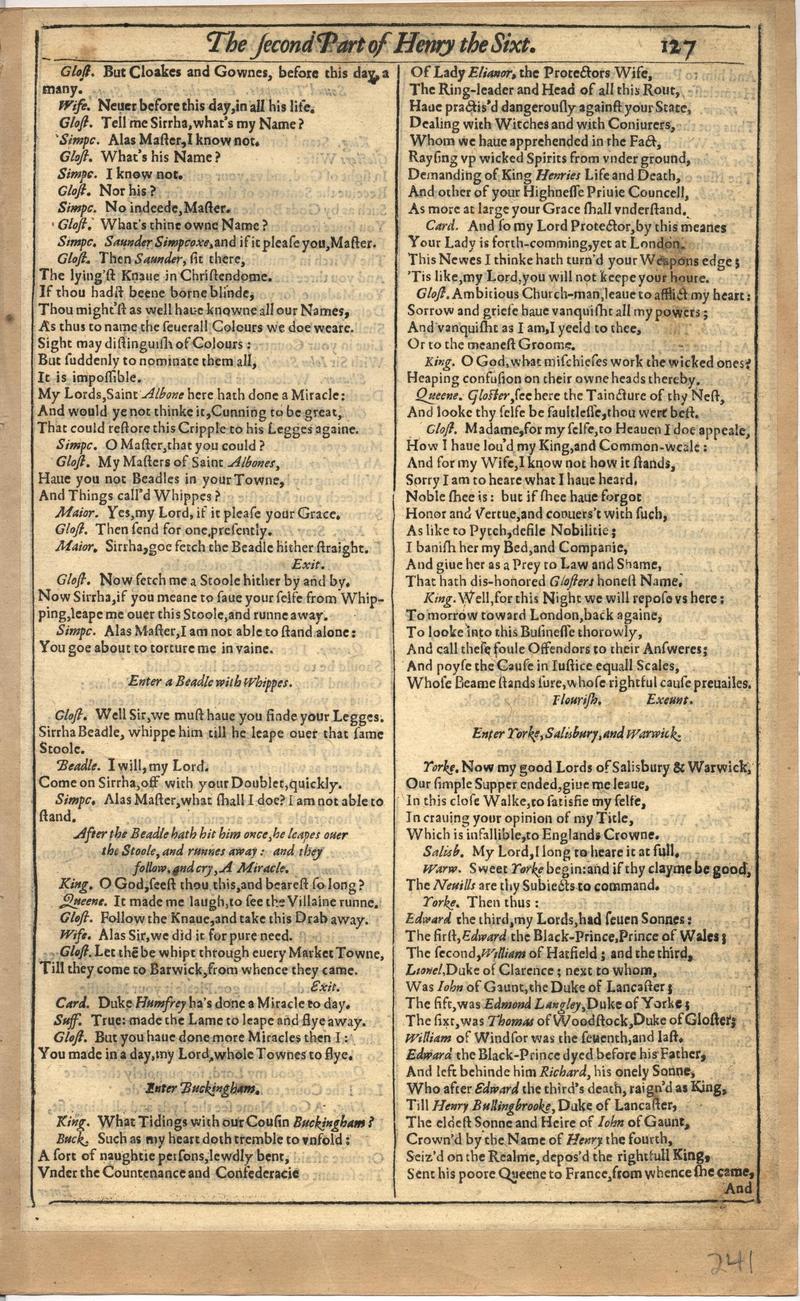 The ſecond Part of Henry the Sixt. 127
Gloſt. But Cloakes and Gownes, before this day, a
many.
Wife. Neuer before this day, in all his life.
Gloſt. Tell me Sirrha, what's my Name?
Simpc. Alas Maſter, I know not.
Gloſt. What's his Name?
Simpc. I know not.
Gloſt. Nor his?
Simpc. No indeede, Maſter.
Gloſt. What's thine owne Name?
Simpc. Saunder Simpcoxe, and if it pleaſe you, Maſter.
Gloſt. Then Saunder, ſit there,
The lying'ſt Knaue in Chriſtendome.
If thou hadſt beene borne blinde,
Thou might'ſt as well haue knowne all our Names,
As thus to name the ſeuerall Colours we doe weare.
Sight may diſtinguiſh of Colours:
But ſuddenly to nominate them all,
It is impoſſible.
My Lords, Saint Albone here hath done a Miracle:
And would ye not thinke it, Cunning to be great,
That could reſtore this Cripple to his Legges againe.
Simpc. O Maſter, that you could?
Gloſt. My Maſters of Saint Albones,
Haue you not Beadles in your Towne,
And Things call'd Whippes?
Maior. Yes, my Lord, if it pleaſe your Grace.
Gloſt. Then ſend for one preſently.
Maior. Sirrha, goe fetch the Beadle hither ſtraight.
Exit.
Gloſt. Now fetch me a Stoole hither by and by.
Now Sirrha, if you meane to ſaue your ſelfe from Whip-
ping, leape me ouer this Stoole, and runne away.
Simpc. Alas Maſter, I am not able to ſtand alone:
You goe about to torture me in vaine.
Enter a Beadle with Whippes.
Gloſt. Well Sir, we muſt haue you finde your Legges.
Sirrha Beadle, whippe him till he leape ouer that ſame
Stoole.
Beadle. I will, my Lord.
Come on Sirrha, off with your Doublet, quickly.
Simpc. Alas Maſter, what ſhall I doe? I am not able to
ſtand.
After the Beadle hath hit him once, he leapes ouer
the Stoole, and runnes away: and they
follow, and cry, A Miracle.
King. O God, ſeeſt thou this, and beareſt ſo long?
Queene. It made me laugh, to ſee the Villaine runne.
Gloſt. Follow the Knaue, and take this Drab away.
Wife. Alas Sir, we did it for pure need.
Gloſt. Let thē be whipt through euery Market Towne,
Till they come to Barwick, from whence they came.
Exit.
Card. Duke Humfrey ha's done a Miracle to day.
Suff. True: made the Lame to leape and flye away.
Gloſt. But you haue done more Miracles then I:
You made in a day, my Lord, whole Townes to flye.
Enter Buckingham.
King. What Tidings with our Couſin Buckingham?
Buck. Such as my heart doth tremble to vnfold:
A ſort of naughtie perſons, lewdly bent,
Vnder the Countenance and Confederacie
Of Lady Elianor, the Protectors Wife,
The Ring-leader and Head of all this Rout,
Haue practis'd dangerouſly againſt your State,
Dealing with Witches and with Coniurers,
Whom we haue apprehended in the Fact,
Rayſing vp wicked Spirits from vnder ground,
Demanding of King Henries Life and Death,
And other of your Highneſſe Priuie Councell,
As more at large your Grace ſhall vnderſtand.
Card. And ſo my Lord Protector, by this meanes
Your Lady is forth-comming, yet at London.
This Newes I thinke hath turn'd your Weapons edge;
'Tis like, my Lord, you will not keepe your houre.
Gloſt. Ambitious Church-man, leaue to afflict my heart:
Sorrow and griefe haue vanquiſht all my powers;
And vanquiſht as I am, I yeeld to thee,
Or to the meaneſt Groome.
King. O God, what miſchiefes work the wicked ones?
Heaping confuſion on their owne heads thereby.
Queene. Gloſter, ſee here the Taincture of thy Neſt,
And looke thy ſelfe be faultleſſe, thou wert beſt.
Gloſt. Madame, for my ſelfe, to Heauen I doe appeale,
How I haue lou'd my King, and Common-weale:
And for my Wife, I know not how it ſtands,
Sorry I am to heare what I haue heard.
Noble ſhee is: but if ſhee haue forgot
Honor and Vertue, and conuers't with ſuch,
As like to Pytch, defile Nobilitie;
I baniſh her my Bed, and Companie,
And giue her as a Prey to Law and Shame,
That hath dis-honored Gloſters honeſt Name.
King. Well, for this Night we will repoſe vs here:
To morrow toward London, back againe,
To looke into this Buſineſſe thorowly,
And call theſe foule Offendors to their Anſweres;
And poyſe the Cauſe in Iuſtice equall Scales,
Whoſe Beame ſtands ſure, whoſe rightful cauſe preuailes.
Flouriſh. Exeunt.
Enter Yorke, Salisbury, and Warwick.
Yorke. Now my good Lords of Salisbury & Warwick,
Our ſimple Supper ended, giue me leaue,
In this cloſe Walke, to ſatisfie my ſelfe,
In crauing your opinion of my Title,
Which is infallible, to Englands Crowne.
Salisb. My Lord, I long to heare it at full.
Warw. Sweet Yorke begin: and if thy clayme be good,
The Neuills are thy Subiects to command.
Yorke. Then thus:
Edward the third, my Lords, had ſeuen Sonnes:
The firſt, Edward the Black-Prince, Prince of Wales;
The ſecond, William of Hatfield; and the third,
Lionel, Duke of Clarence; next to whom,
Was Iohn of Gaunt, the Duke of Lancaſter;
The fift, was Edmond Langley, Duke of Yorke;
The ſixt, was Thomas of Woodſtock, Duke of Gloſter;
William of Windſor was the ſeuenth, and laſt.
Edward the Black-Prince dyed before his Father,
And left behinde him Richard, his onely Sonne,
Who after Edward the third's death, raign'd as King,
Till Henry Bullingbrooke, Duke of Lancaſter,
The eldeſt Sonne and Heire of Iohn of Gaunt,
Crown'd by the Name of Henry the fourth,
Seiz'd on the Realme, depos'd the rightfull King,
Sent his poore Queene to France, from whence ſhe came,
And
241